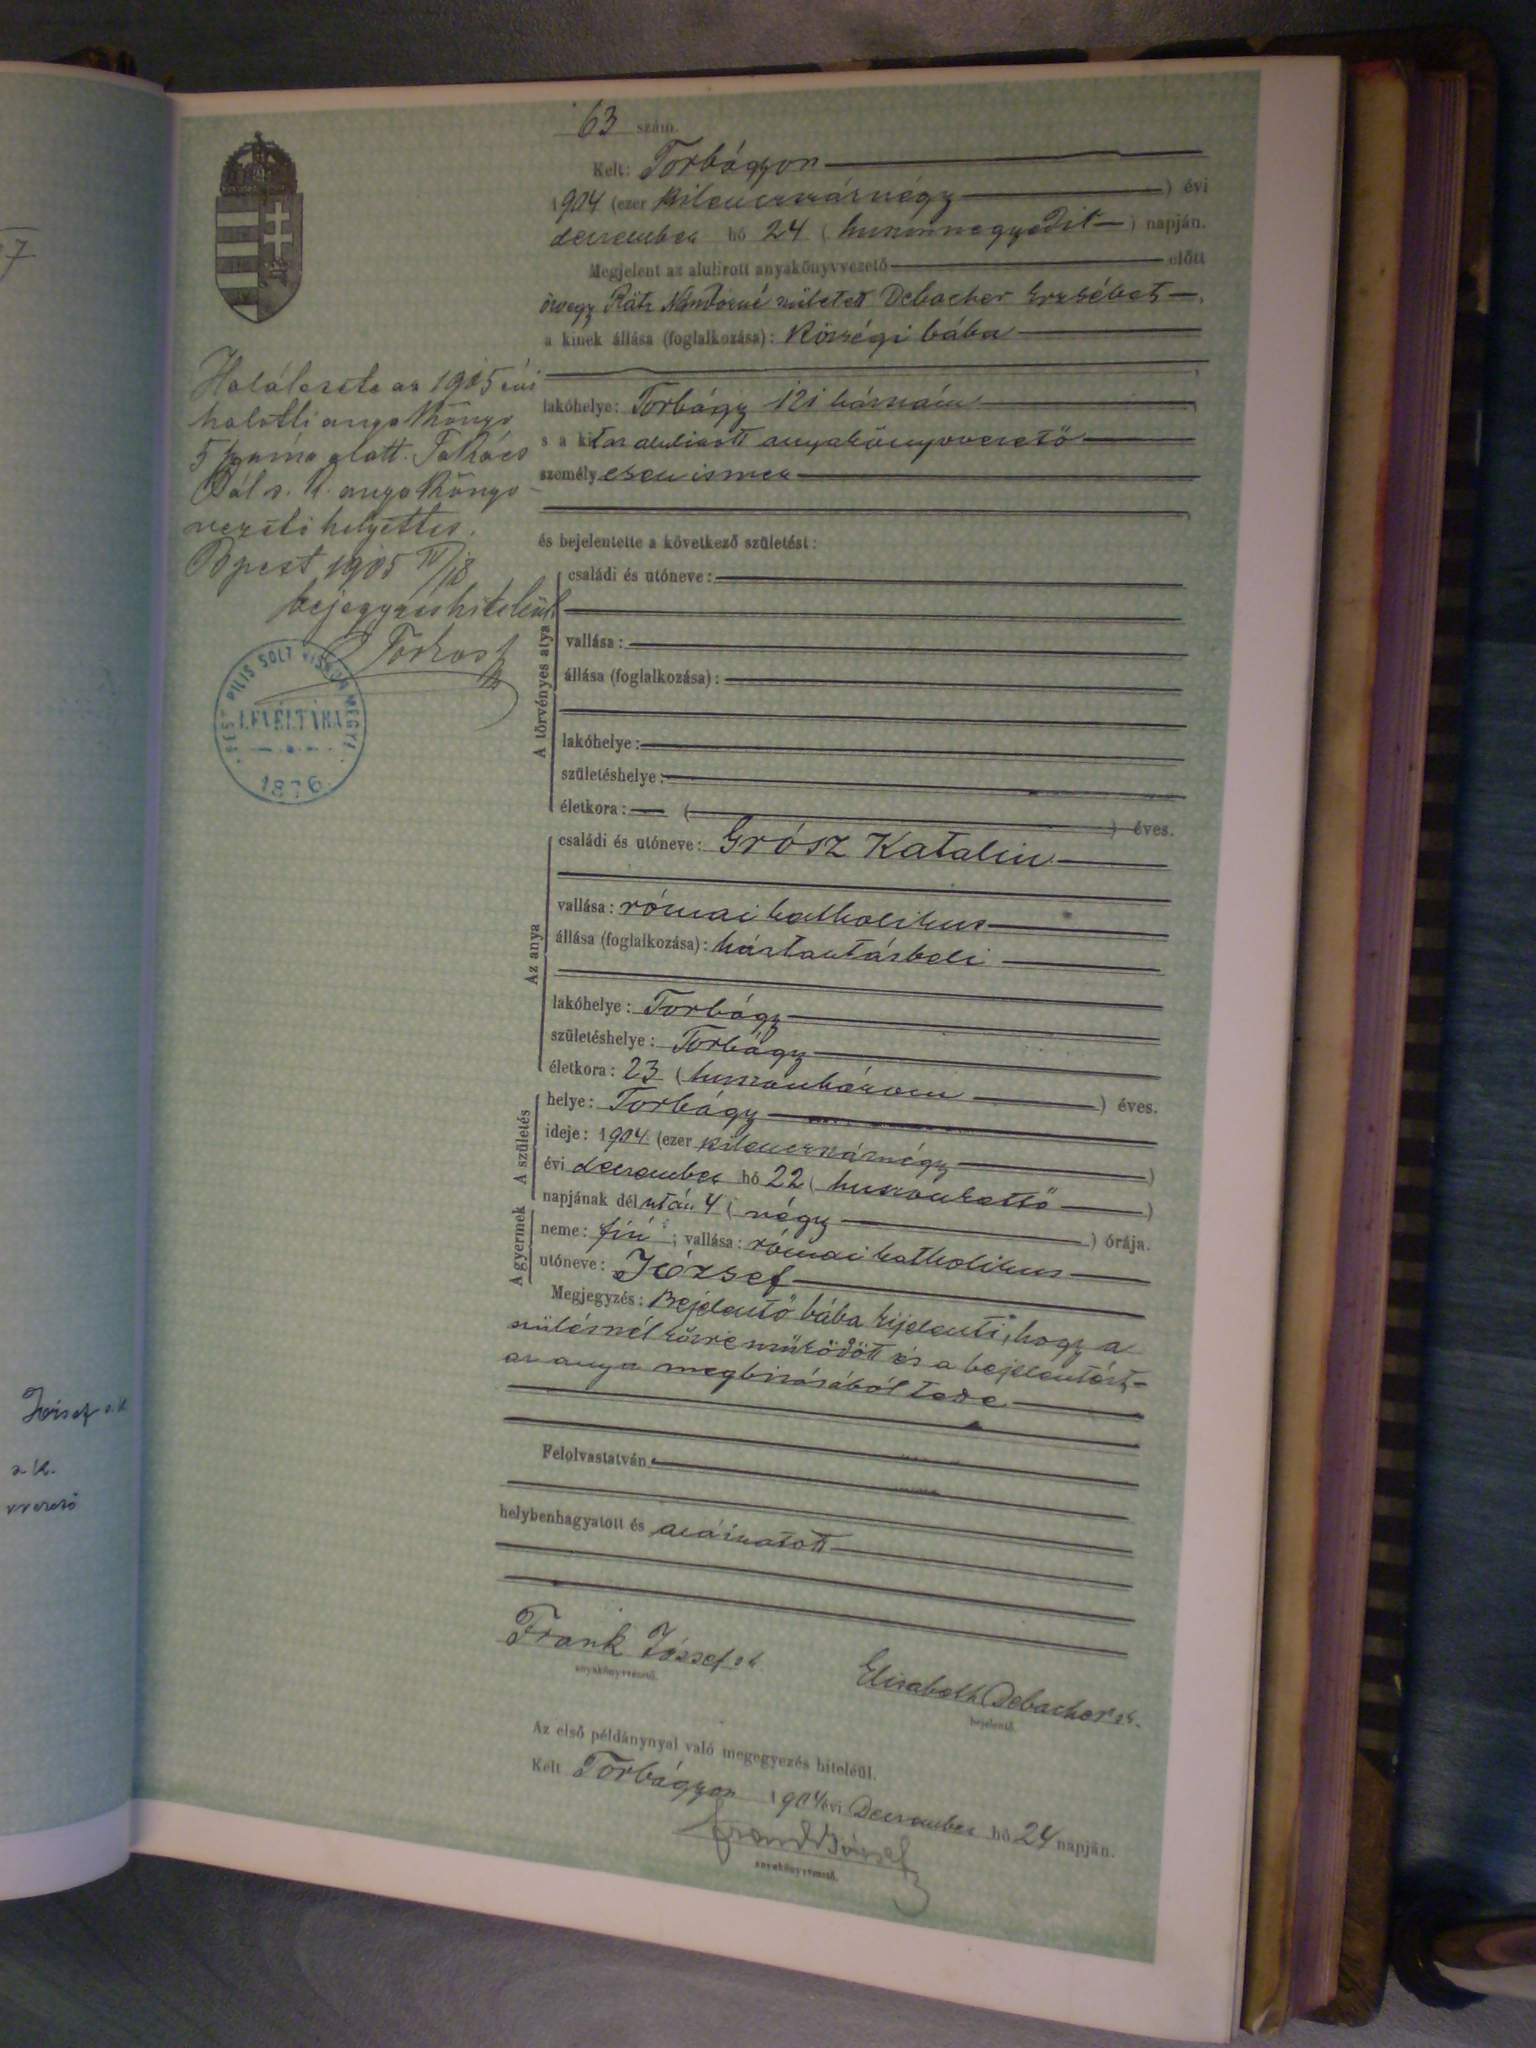 63 szám.
Kelt: Torbágyon
1904 (ezer kilenczszáznégy) évi
deczember hó 24 (huszonnegyedik) napján.
Megjelent az alulirott anyakönyvvezető előtt
özvegy Rátz Nándorné született Debacher Erzsébet
a kinek állása (foglalkozása): községi bába
lakóhelye: Torbágy 121 házszám
s a kit az alulirott anyakönyvvezető
személyesen ismer
és bejelentette a következő születést:
A törvényes atya
családi és utóneve:
vallása:
állása (foglalkozása):
lakóhelye:
születéshelye:
életkora: ( ) éves.
Az anya
családi és utóneve: Grósz Katalin
vallása: római katholikus
állása (foglalkozása): háztartásbeli
lakóhelye: Torbágy
születéshelye: Torbágy
életkora: 23 (huszonhárom) éves.
A születés
helye: Torbágy
ideje: 1904 (ezer kilenczszáznégy)
évi deczember hó 22 (huszonkettő)
napjának délután 4 (négy) órája.
A gyermek
neme: fiú; vallása: római katholikus
utóneve: József
Megjegyzés: Bejelentő bába kijelenti, hogy a
szülésnél közreműködött és a bejelentést
az anya megbizásából teszi
Felolvastatván
helybenhagyatott és aláiratott
Frank József s.k.
anyakönyvvezető.
Elisabeth Debacher s.k.
bejelentő.
Az első példánynyal való megegyezés hiteléül.
Kelt Torbágyon 1904 évi Deczember hó 24 napján.
Frank József
anyakönyvvezető.
Halálesete az 1905 évi
halotti anyakönyv
5 száma alatt. Takács
Pál s. k. anyakönyv
vezető helyettes.
Bpest 1905 IV/18
bejegyzés hiteléül
PEST PILIS SOLT KISKUN MEGYE
LEVÉLTÁRA
1876
József s.k.
s.k.
vvezető